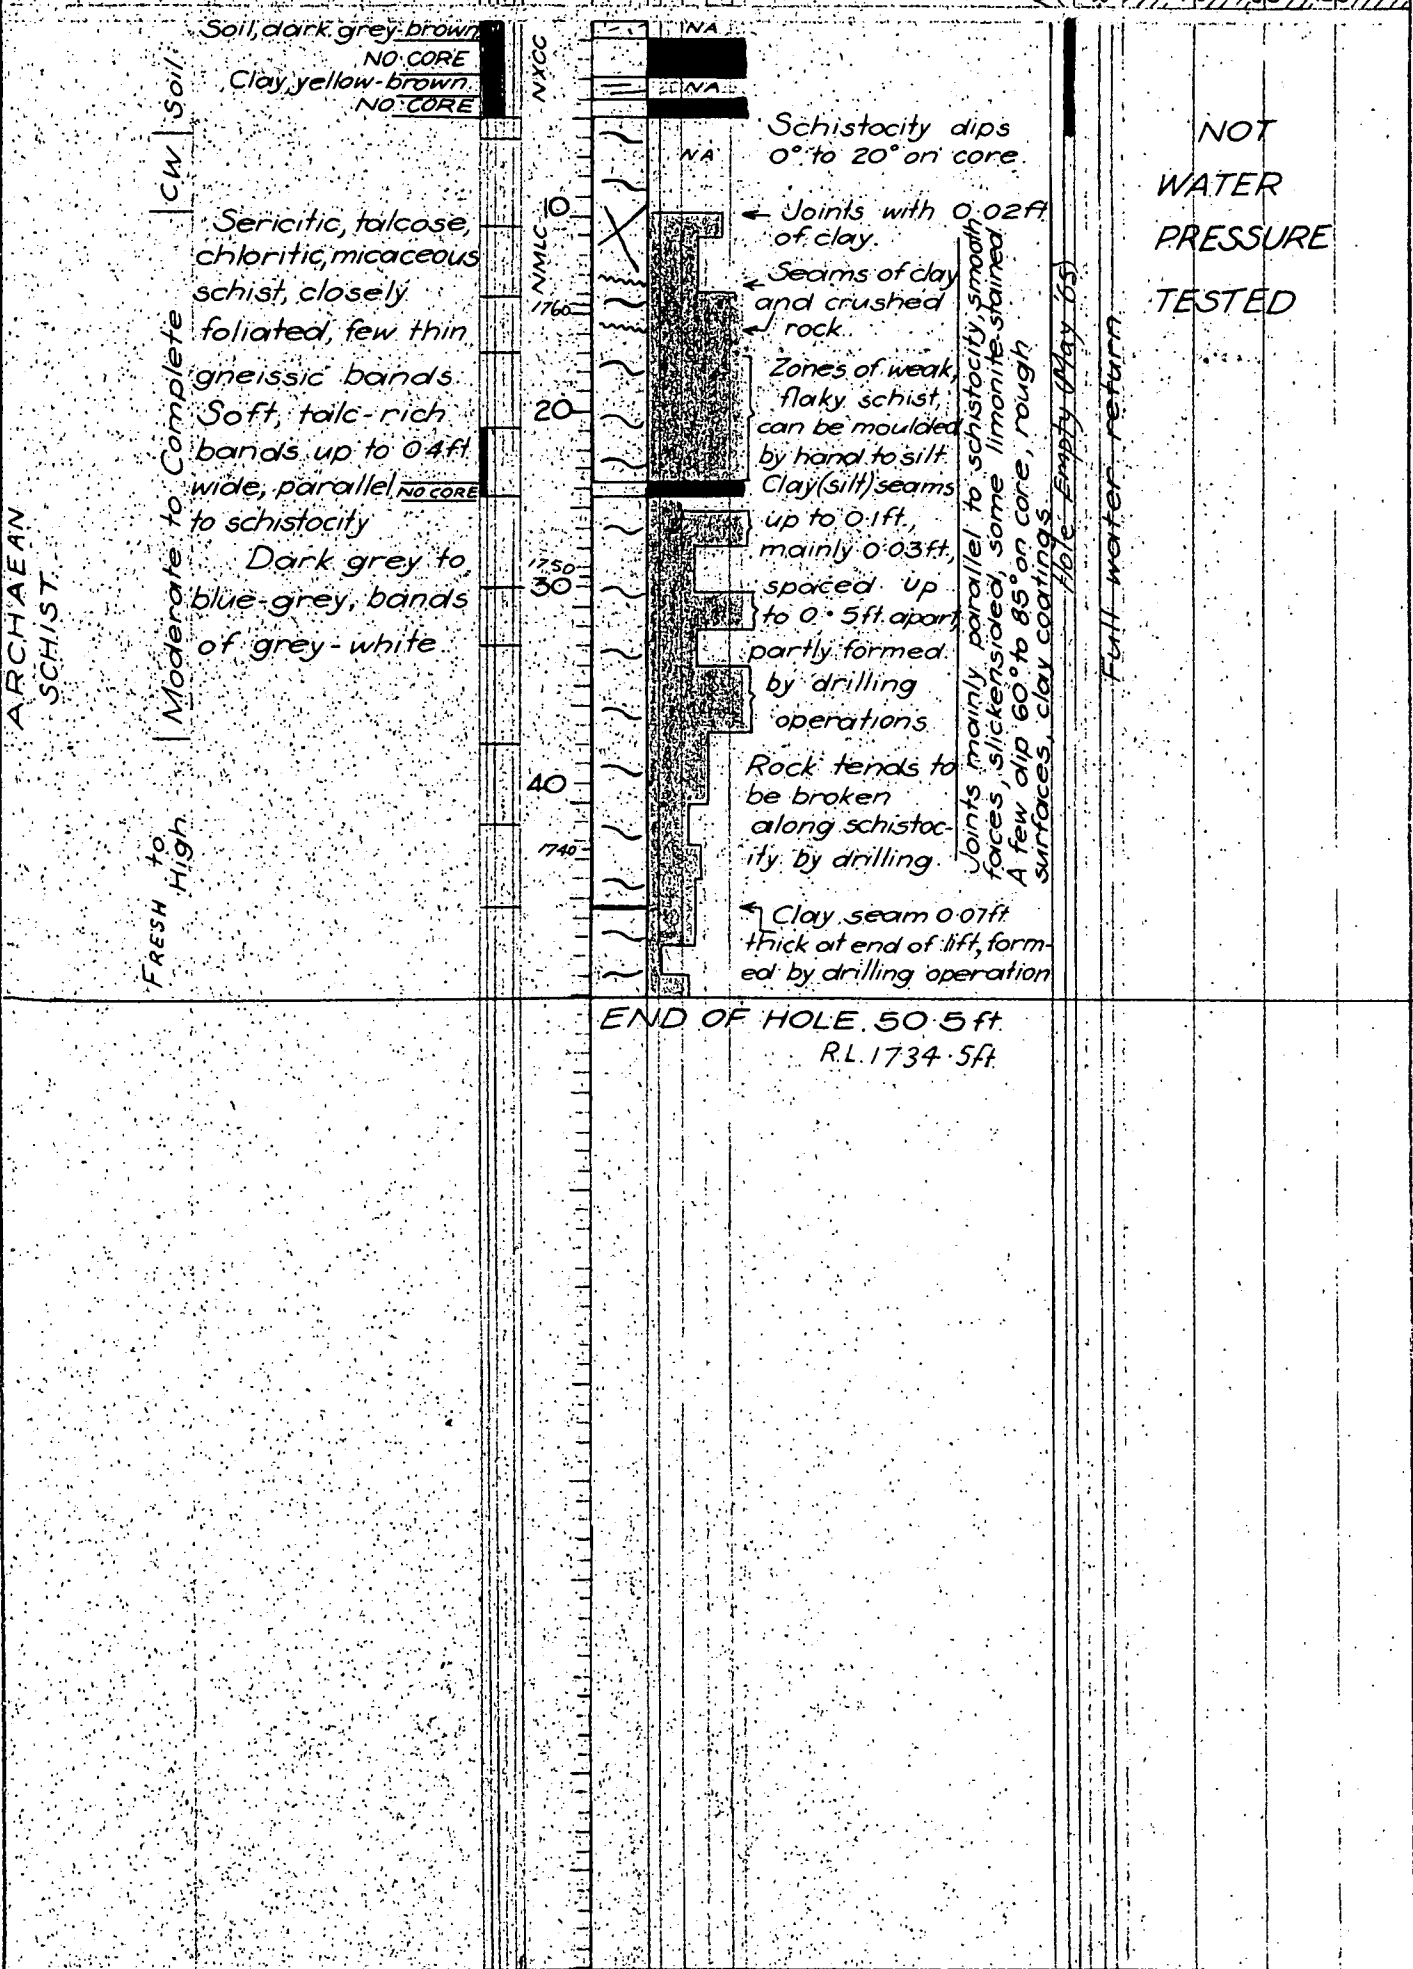 Soil, dark grey-brown
NO CORE
Clay, yellow-brown
NO CORE
Soil
CW
Moderate to Complete
FRESH to
High
ARCHAEAN
SCHIST
Sericitic, talcose,
chloritic, micaceous
schist, closely
foliated, few thin
gneissic bands
Soft, talc-rich
bands up to 0.4ft
wide, parallel NO CORE
to schistocity
Dark grey to
blue-grey, bands
of grey-white
NXCC
NMLC
10
1760
20
1750
30
40
1740
NA
NA
NA
Schistocity dips
0° to 20° on core.
Joints with 0.02ft
of clay.
Seams of clay
and crushed
rock.
Zones of weak,
flaky schist,
can be moulded
by hand to silt
Clay (silt) seams
up to 0.1ft.,
mainly 0.03ft,
spaced up
to 0.5ft. apart,
partly formed
by drilling
operations
Rock tends to
be broken
along schistoc-
ity by drilling.
Clay seam 0.07ft
thick at end of lift, form-
ed by drilling operation
Joints mainly parallel to schistocity, smooth
faces, slickensided, some limonite-stained
A few dip 60° to 85° on core, rough
surfaces, clay coatings
Hole Empty (May '65)
Full water return
NOT
WATER
PRESSURE
TESTED
END OF HOLE. 50.5 ft.
R.L. 1734.5ft